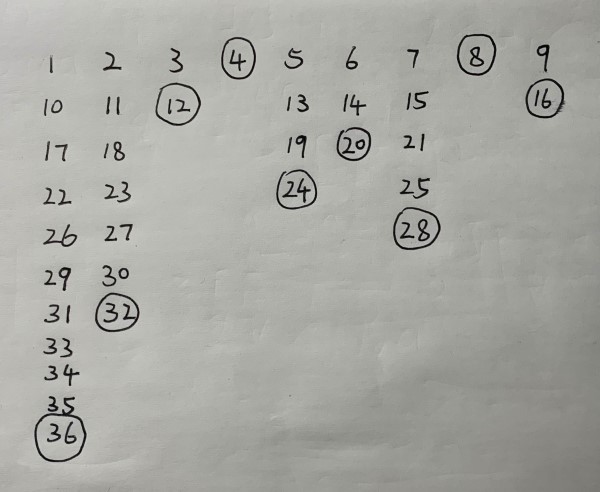 1 2 3 4 5 6 7 8 9
10 11 12 13 14 15 16
17 18 19 20 21
22 23 24 25
26 27 28
29 30
31 32
33
34
35
36